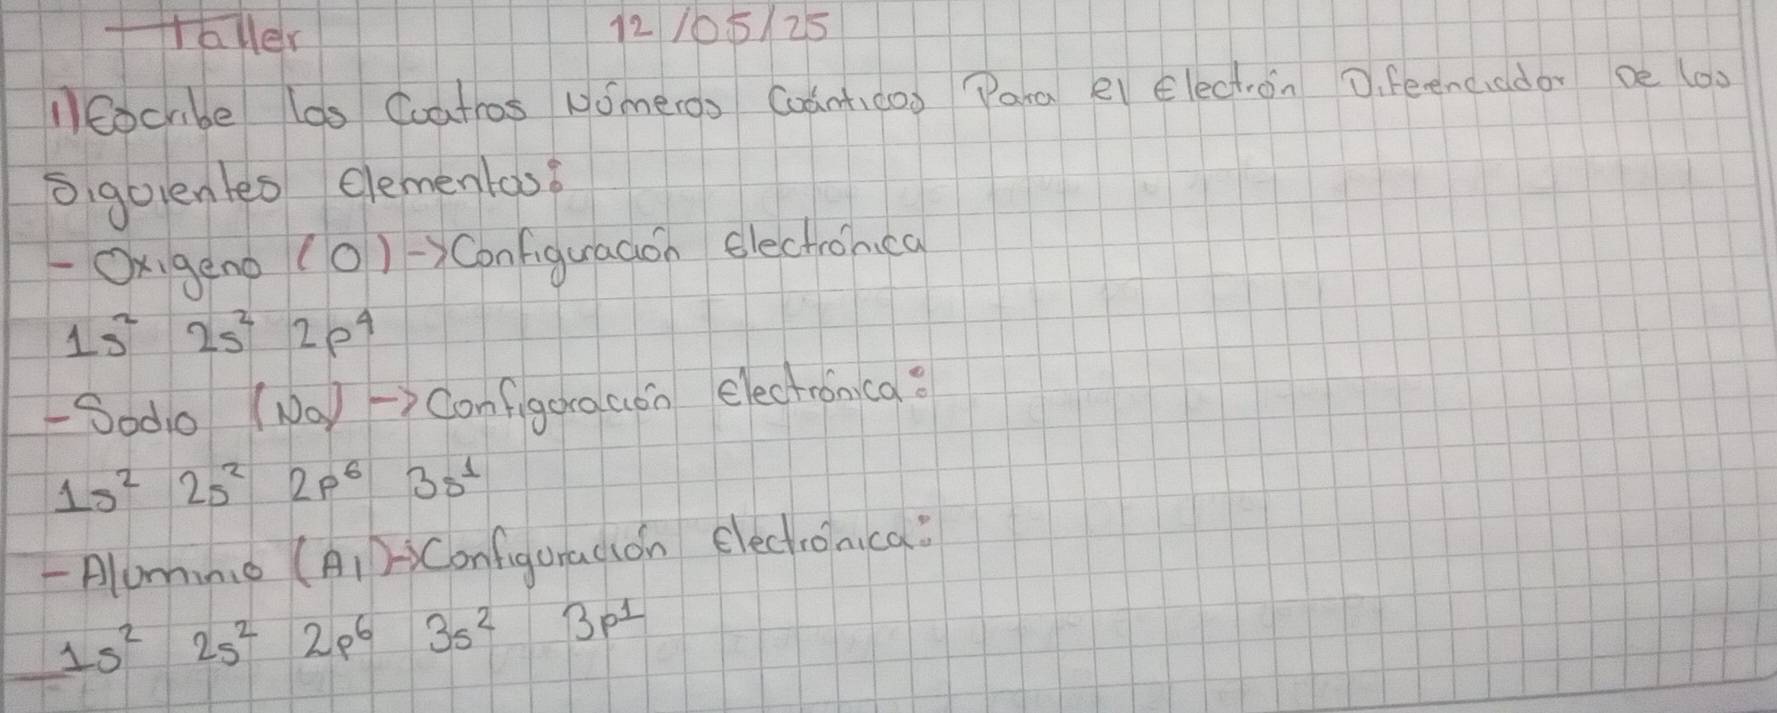 Taller 12/05/25
1) Escribe los Cuatros Números Cuánticos Para el Electrón Difeenciador De los
Siguientes elementos:
- Oxigeno (O) -> Configuración electrónica
1s² 2s² 2p⁴
- Sodio (Na) -> Configuración electrónica:
1s² 2s² 2p⁶ 3s¹
- Aluminio (Al) -> Configuración electrónica:
1s² 2s² 2p⁶ 3s² 3p¹